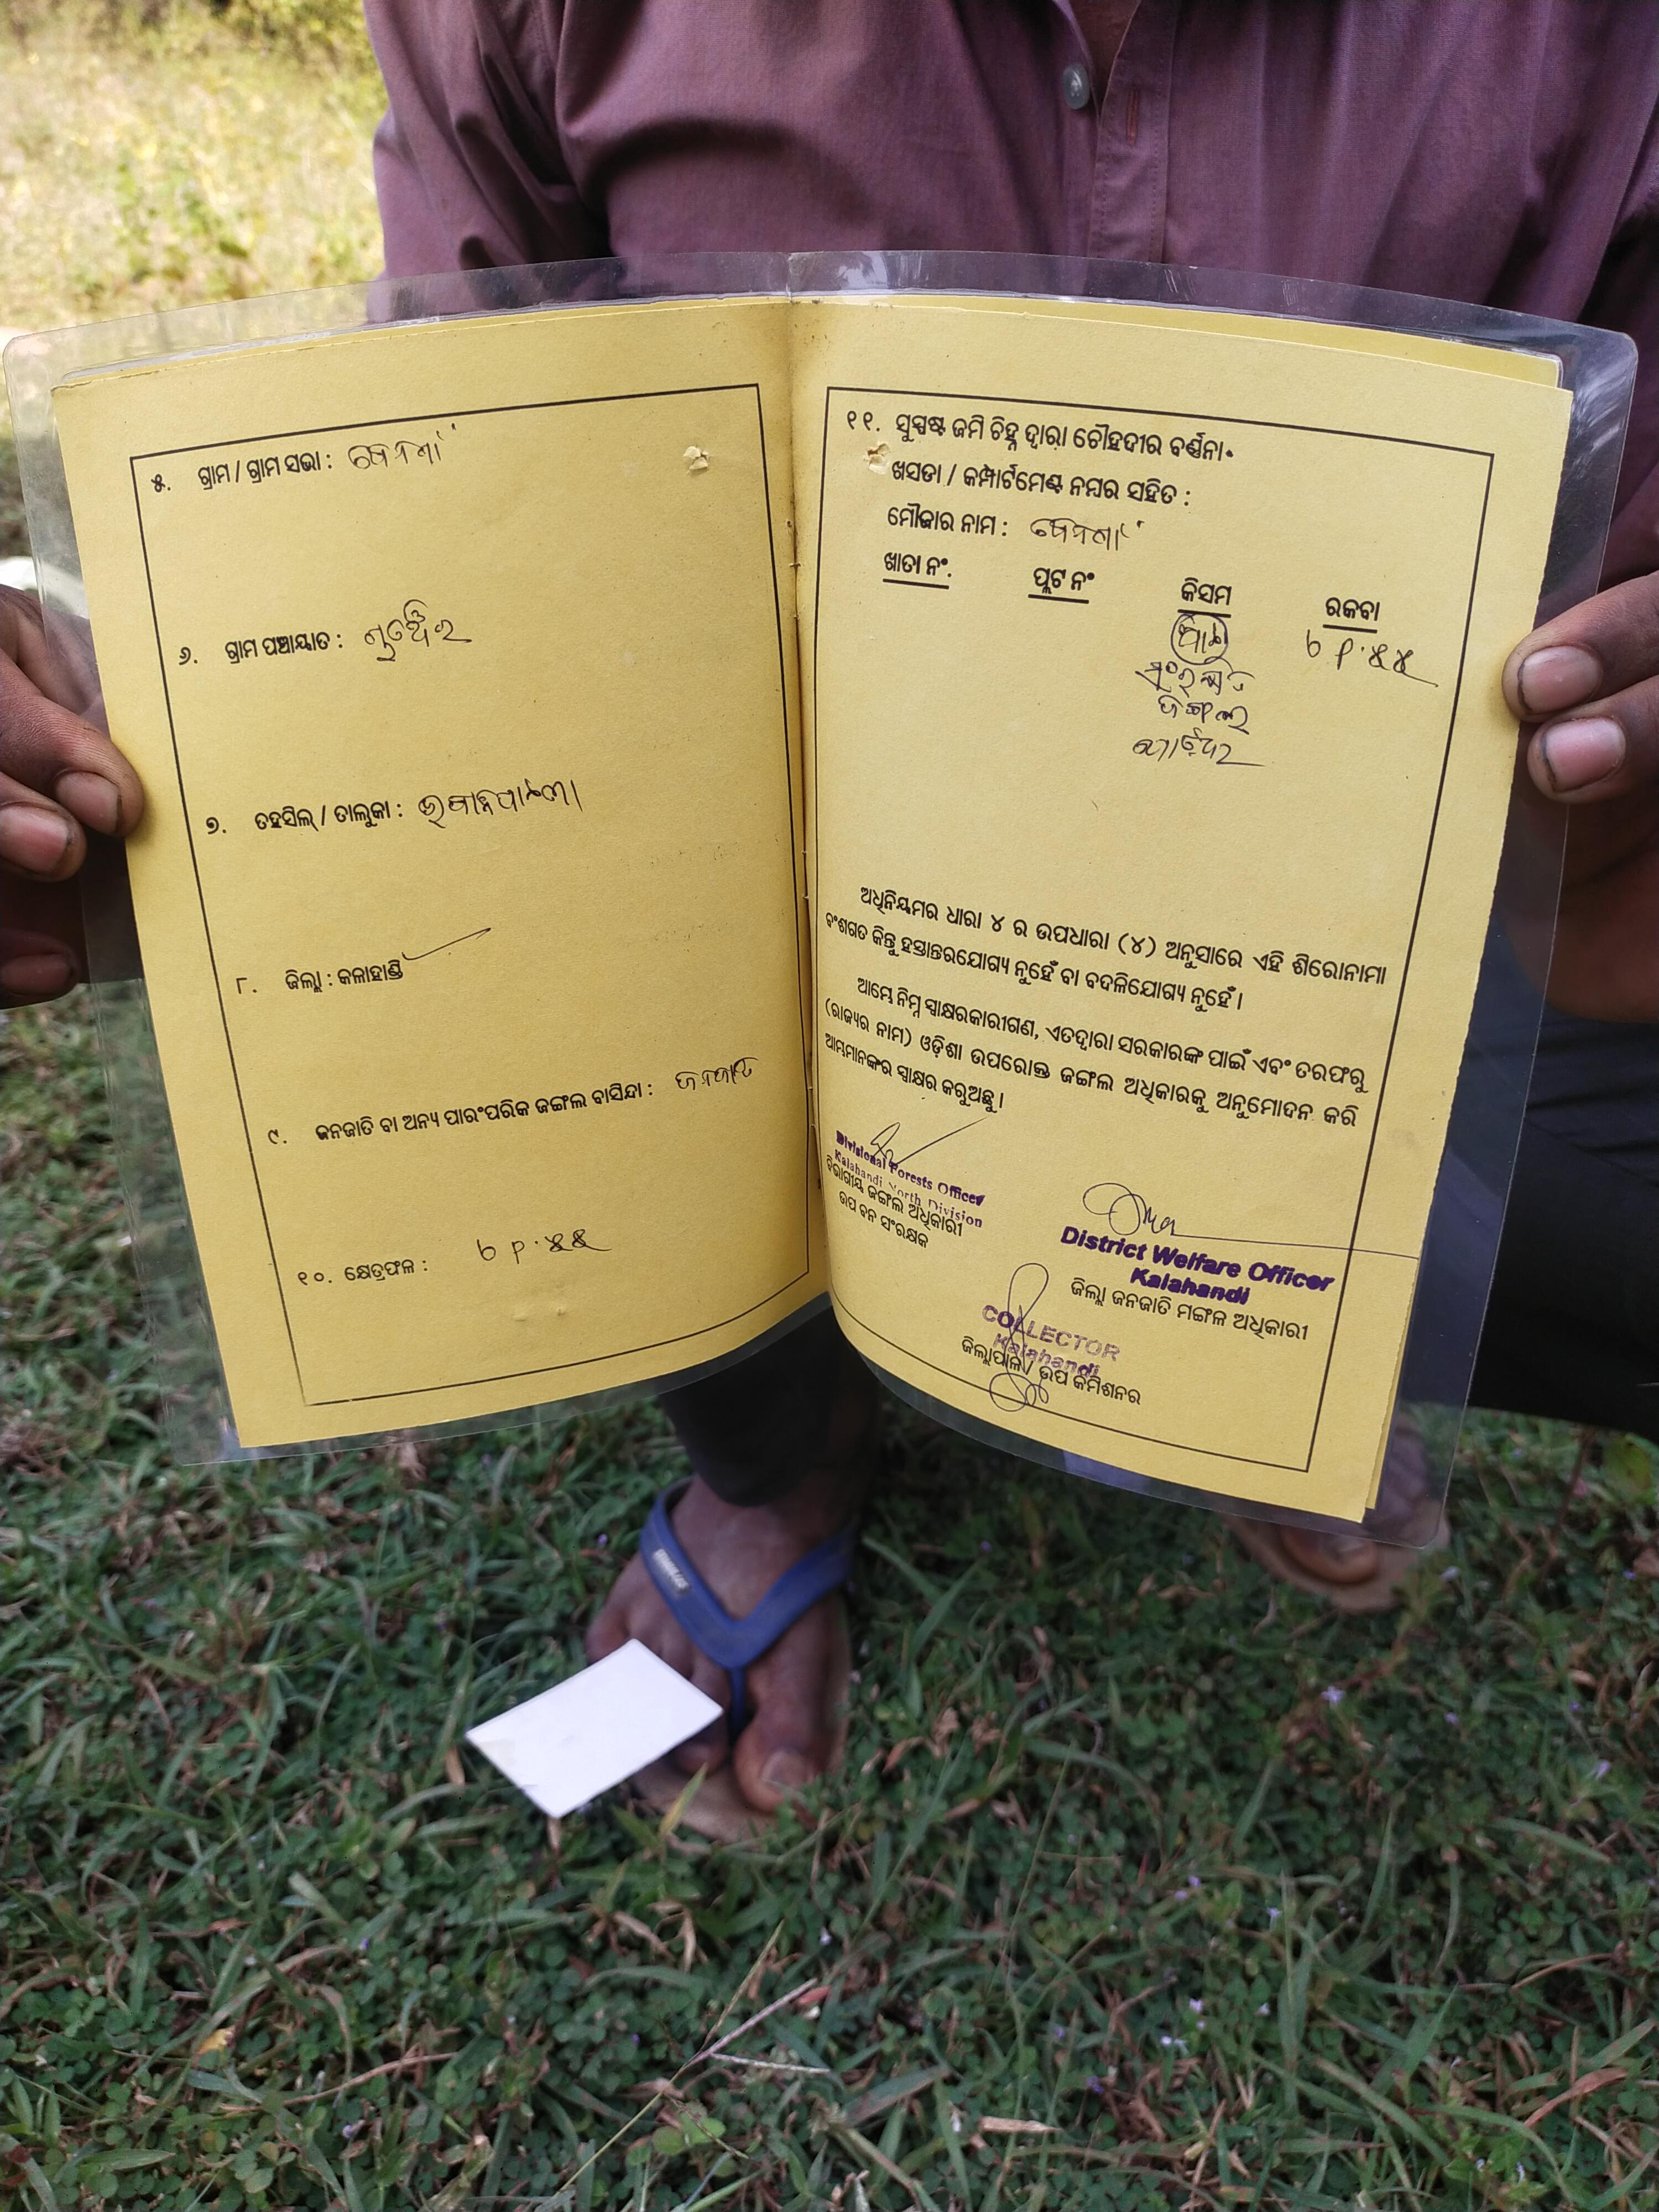 ୫. ଗ୍ରାମ / ଗ୍ରାମ ସଭା :
୬. ଗ୍ରାମ ପଞ୍ଚାୟାତ :
୭. ତହସିଲ୍ / ତାଲୁକା : ଭବାନୀପାଟଣା
୮. ଜିଲ୍ଲା : କଳାହାଣ୍ଡି
୯. ଜନଜାତି ବା ଅନ୍ୟ ପାରଂପରିକ ଜଙ୍ଗଲ ବାସିନ୍ଦା : ଜନଜାତି
୧୦. କ୍ଷେତ୍ରଫଳ :
୧୧. ସୁସ୍ପଷ୍ଟ ଜମି ଚିହ୍ନ ଦ୍ୱାରା ଚୌହଦୀର ବର୍ଣ୍ଣନା.
ଖସଡା / କମ୍ପାର୍ଟମେଣ୍ଟ ନମ୍ବର ସହିତ :
ମୌଜାର ନାମ :
ଖାତା ନଂ. ପ୍ଲଟ ନଂ କିସମ ରକବା
ଜଙ୍ଗଲ
ଅଧିନିୟମର ଧାରା ୪ ର ଉପଧାରା (୪) ଅନୁସାରେ ଏହି ଶିରୋନାମା
ବଂଶଗତ କିନ୍ତୁ ହସ୍ତାନ୍ତରଯୋଗ୍ୟ ନୁହେଁ ବା ବଦଳିଯୋଗ୍ୟ ନୁହେଁ ।
ଆମ୍ଭେ ନିମ୍ନ ସ୍ୱାକ୍ଷରକାରୀଗଣ, ଏତଦ୍ୱାରା ସରକାରଙ୍କ ପାଇଁ ଏବଂ ତରଫରୁ
(ରାଜ୍ୟର ନାମ) ଓଡ଼ିଶା ଉପରୋକ୍ତ ଜଙ୍ଗଲ ଅଧିକାରକୁ ଅନୁମୋଦନ କରି
ଆମ୍ଭମାନଙ୍କର ସ୍ୱାକ୍ଷର କରୁଅଛୁ ।
Divisional Forests Officer
Kalahandi North Division
ବିଭାଗୀୟ ଜଙ୍ଗଲ ଅଧିକାରୀ
ଉପ ବନ ସଂରକ୍ଷକ
District Welfare Officer
Kalahandi
ଜିଲ୍ଲା ଜନଜାତି ମଙ୍ଗଳ ଅଧିକାରୀ
COLLECTOR
Kalahandi
ଜିଲ୍ଲାପାଳ / ଉପ କମିଶନର